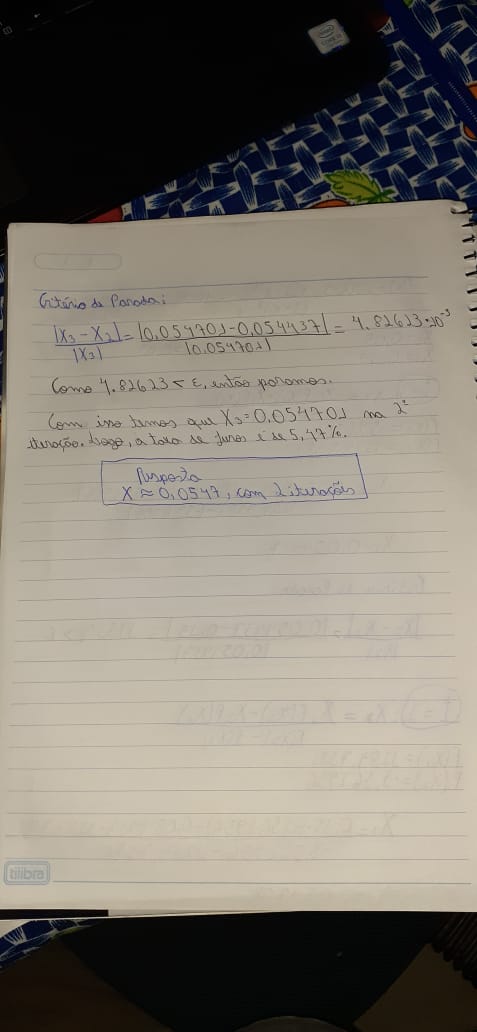 Critério de Parada:
|X₃ - X₂| / |X₃| = |0,054701 - 0,054437| / |0,054701| = 4.82623 * 10⁻³
Como 4.82623 < ε, então paramos.
Com isso temos que X₃ = 0,054701 na 2ª
iteração. Logo, a taxa de juros é de 5,47%.
Resposta
X ≈ 0,0547, com 2 iterações
tilibra